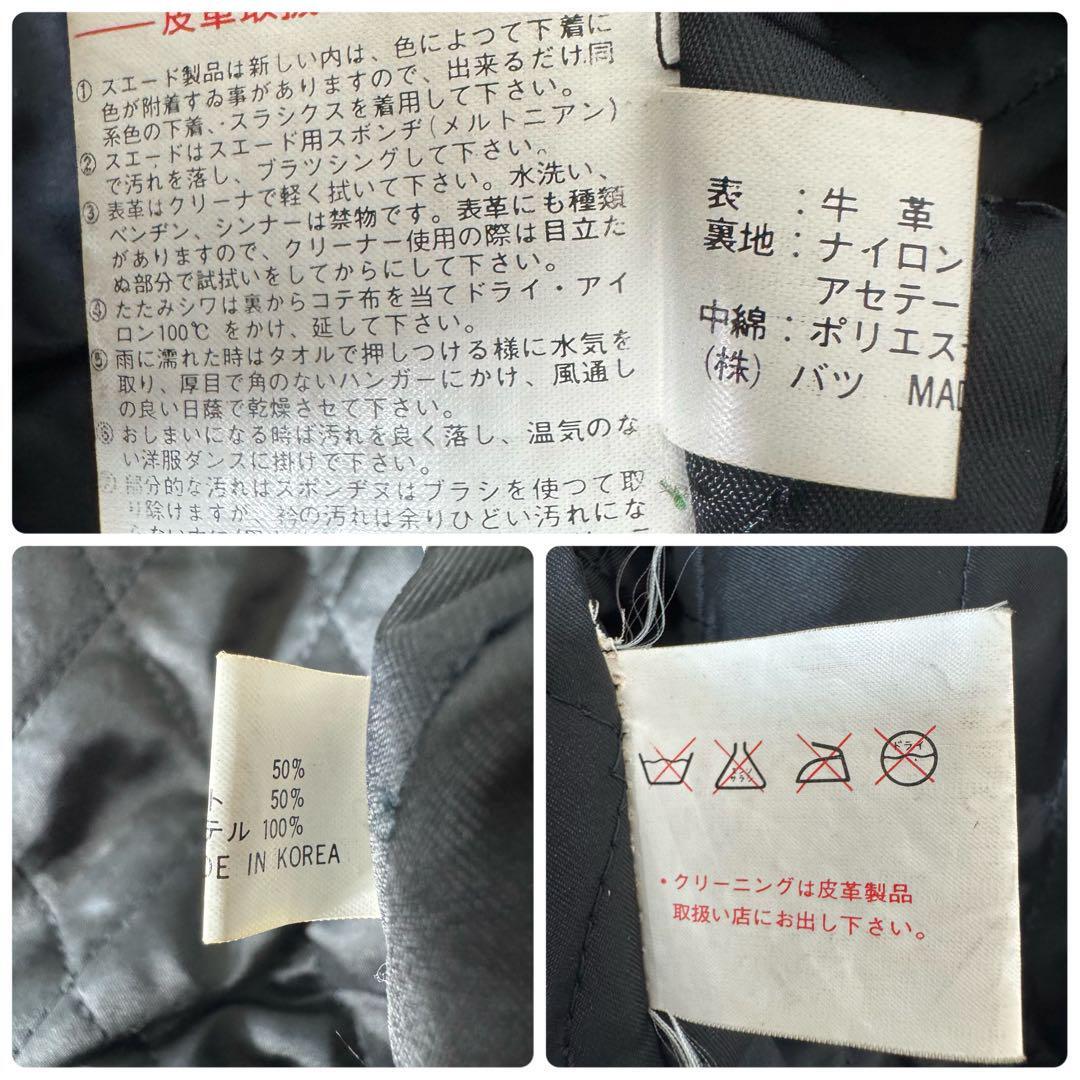 皮革取扱
① スエード製品は新しい内は、色によつて下着に
色が附着すゐ事がありますので、出来るだけ同
系色の下着、スラシクスを着用して下さい。
② スエードはスエード用スポンヂ(メルトニアン)
で汚れを落し、ブラツシングして下さい。
③ 表革はクリーナで軽く拭いて下さい。水洗い、
ベンヂン、シンナーは禁物です。表革にも種類
がありますので、クリーナー使用の際は目立た
ぬ部分で試拭いをしてからにして下さい。
④ たたみシワは裏からコテ布を当てドライ・アイ
ロン100℃ をかけ、延して下さい。
⑤ 雨に濡れた時はタオルで押しつける様に水気を
取り、厚目で角のないハンガーにかけ、風通し
の良い日蔭で乾燥させて下さい。
⑥ おしまいになる時ば汚れを良く落し、温気のな
い洋服ダンスに掛けで下さい。
部分的な汚れはスポンヂヌはブラシを使つて取
り除けますが、衿の汚れは余りひどい汚れにな
表 : 牛 革
裏地 : ナイロン
アセテー
中綿 : ポリエス
(株) バツ MAD
50%
ト 50%
テル 100%
DE IN KOREA
エンソ
サラシ
ドライ
・クリーニングは皮革製品
取扱い店にお出し下さい。